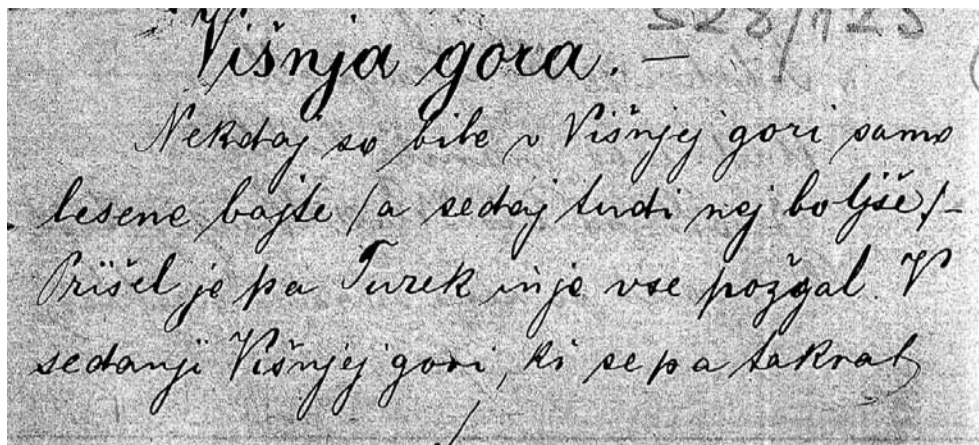 528/123
Višnja gora. —
Nekdaj so bile v Višnjej gori samo
lesene bajte /a sedaj tudi nej boljše/-
Prišel je pa Turek in je vse požgal. V
sedanji Višnjej gori, ki se pa takrat